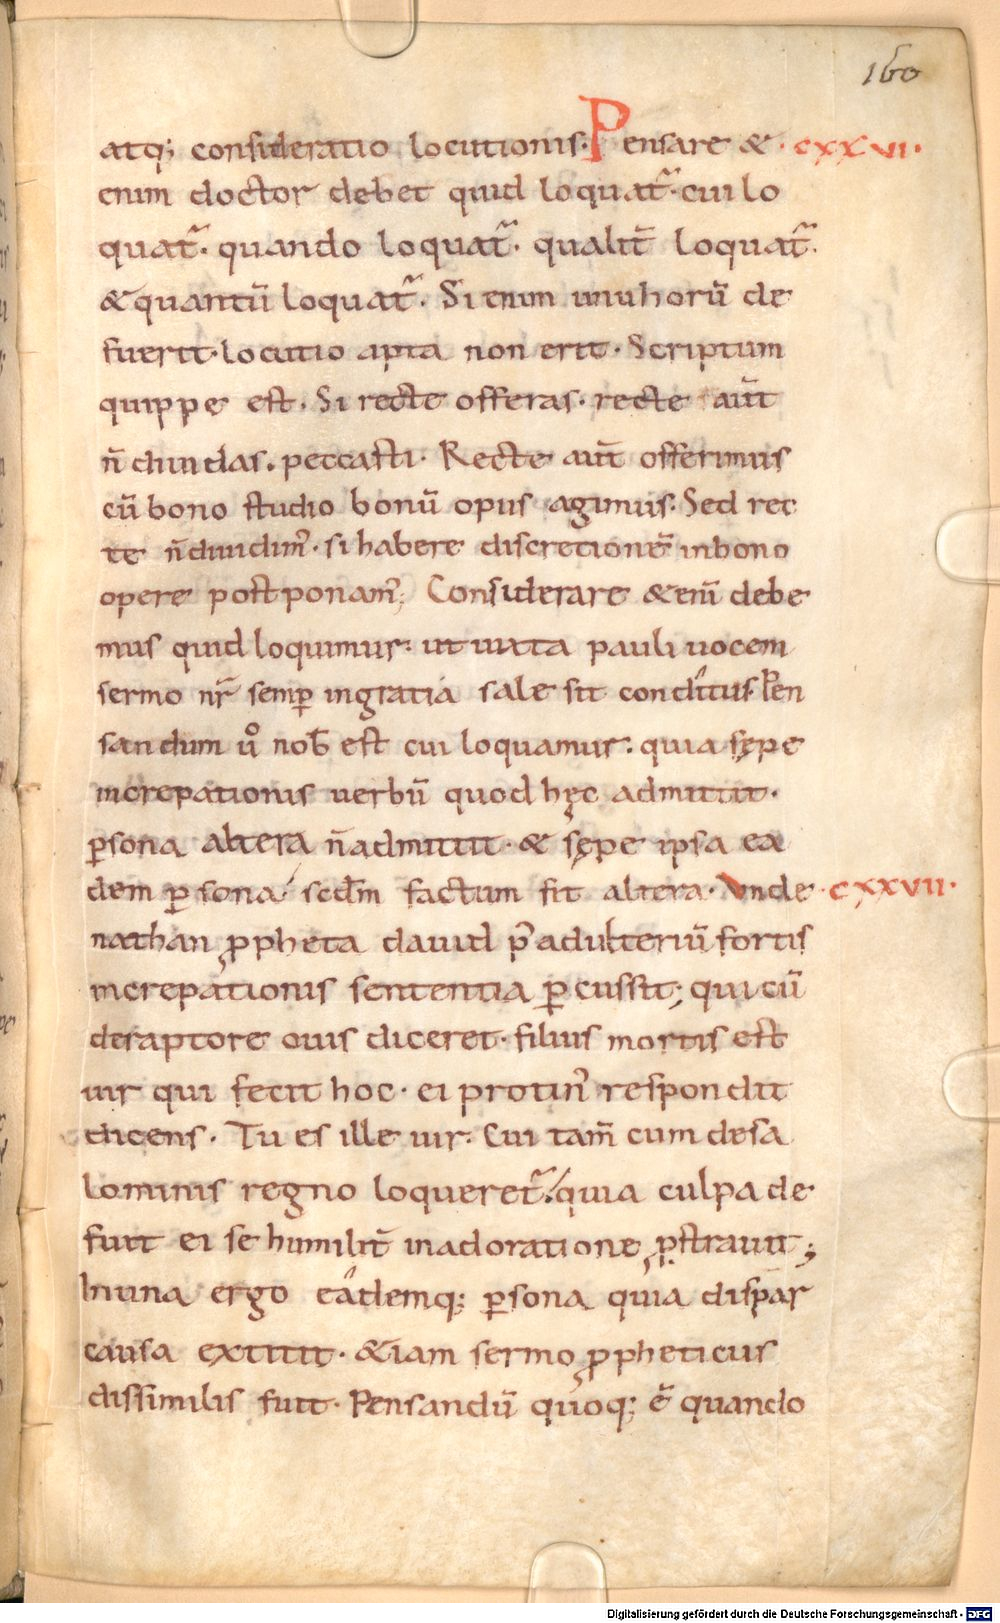 160
atq; consideratio locutionis. Pensare & · cxxvi ·
enim doctor debet quid loquat᷒. cui lo
quat᷒. quando loquat᷒. qualit̄ loquat᷒.
& quantū loquat᷒. Si enim unū horū de
fuerit. locutio apta non erit. Scriptum
quippe est. Si recte offeras. recte aūt
n̄ diuidas. peccasti. Recte aūt offerimus
cū bono studio bonū opus agimus. Sed rec
te n̄ diuidim᾽. si habere discretionē inbono
opere postponam᾽; Considerare & enī debe
mus quid loquimur. ut iuxta pauli uocem
sermo nr̄ semp̄ ingratia sale sit conditus. Pen
sandum uͦ nob̄ est cui loquamur. quia sępe
increpationis uerbū quod hęc admittit.
ꝑsona altera n̄ admittit. & sępe ipsa ea
dem ꝑsona scd̄m factum fit altera. Vnde · cxxvii ·
nathan ꝓpheta dauid p᾽ adulteriū fortis
increpationis sententia ꝑcussit; qui cū
deraptore ouis diceret. filius mortis est
uir qui fecit hoc. ei protin᾽ respondit
dicens. Tu es ille uir. Cui tam̄ cum desa
lominis regno loqueret᷒. quia culpa de
fuit ei se humilit̄ inadoratione ꝓstrauit;
In una ergo eademq; ꝑsona quia dispar
causa extitit. &iam sermo ꝓpheticus
dissimilis fuit. Pensandū quoq; ē quando
Digitalisierung gefördert durch die Deutsche Forschungsgemeinschaft - DFG